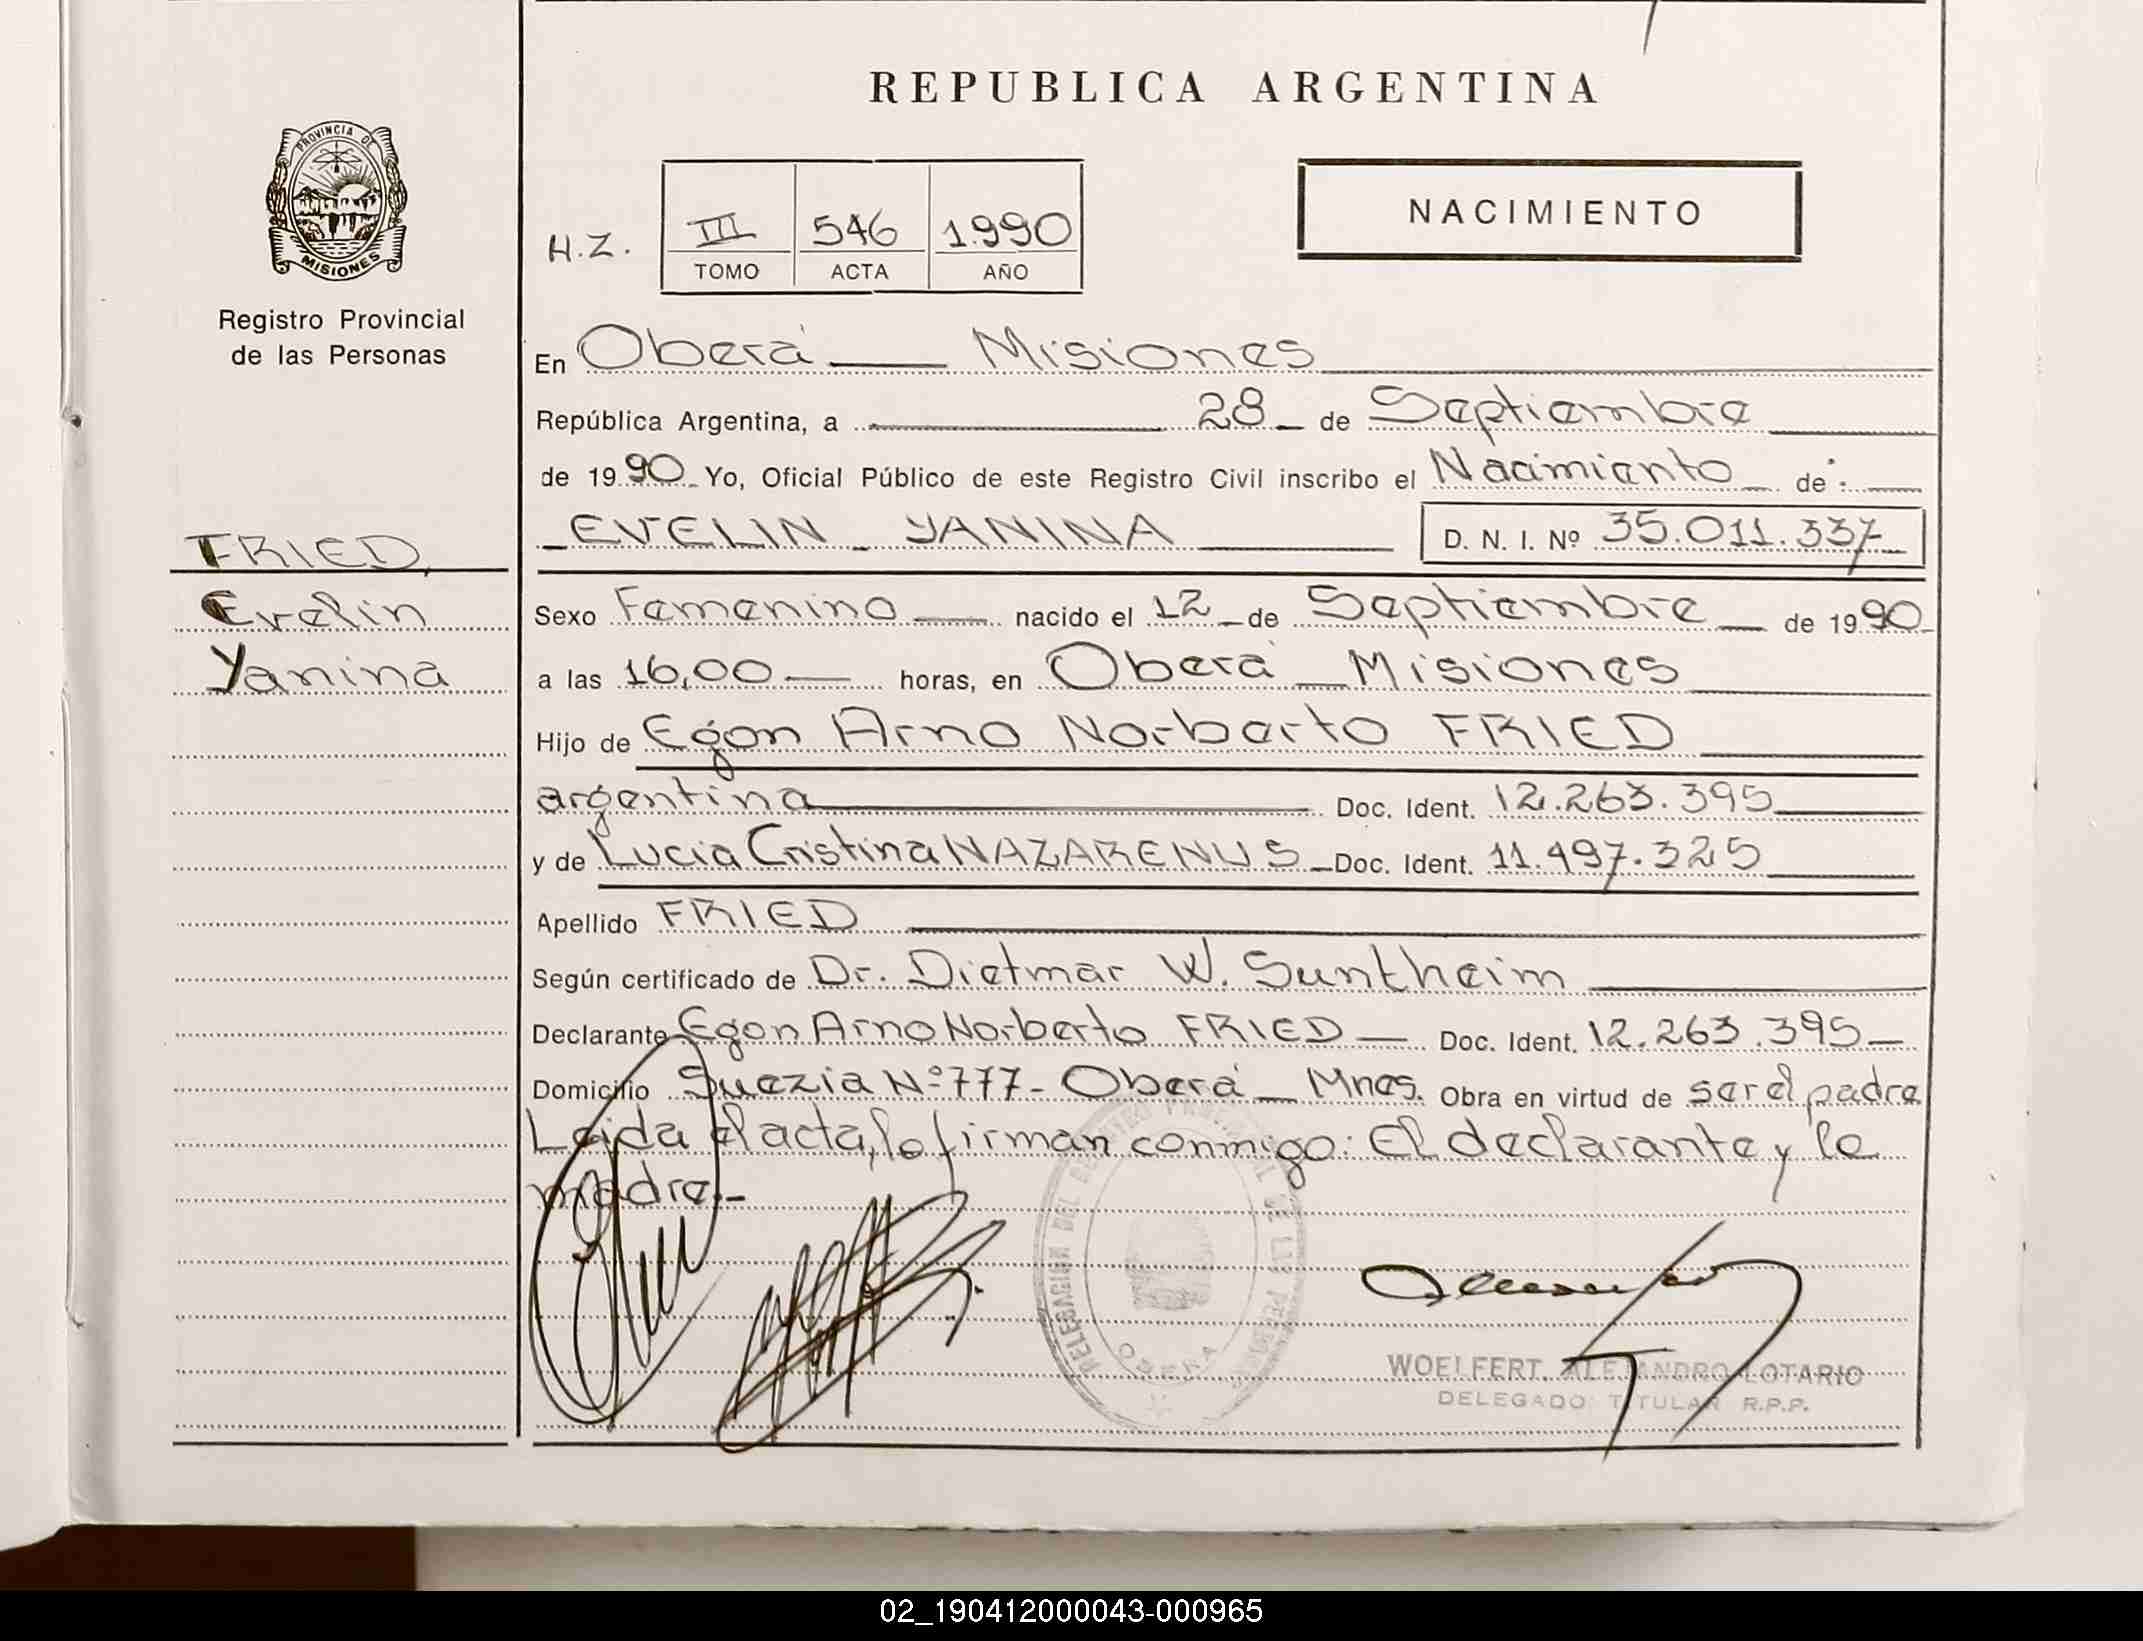 REPUBLICA ARGENTINA
PROVINCIA DE
MISIONES
Registro Provincial
de las Personas
H.Z.
III 546 1.990
TOMO ACTA AÑO
NACIMIENTO
En Oberá Misiones
República Argentina, a 28 de Septiembre
de 1990 Yo, Oficial Público de este Registro Civil inscribo el Nacimiento de:
EVELIN YANINA D. N. I. Nº 35.011.337
FRIED,
Evelin
Yanina
Sexo Femenino nacido el 12 de Septiembre de 1990
a las 16,00 horas, en Oberá Misiones
Hijo de Egon Arno Norberto FRIED
argentina Doc. Ident. 12.263.395
y de Lucia Cristina NAZARENUS Doc. Ident. 11.497.325
Apellido FRIED
Según certificado de Dr. Dietmar W. Suntheim
Declarante Egon Arno Norberto FRIED Doc. Ident. 12.263.395
Domicilio Suezia Nº 777- Oberá Mnes. Obra en virtud de ser el padre
Leida el acta, lo firman conmigo: El declarante y la
madre.-
DELEGACION DEL REGISTRO PROVINCIAL DE LAS PERSONAS
OBERA
WOELFERT, ALEJANDRO LOTARIO
DELEGADO TITULAR R.P.P.
02_190412000043-000965